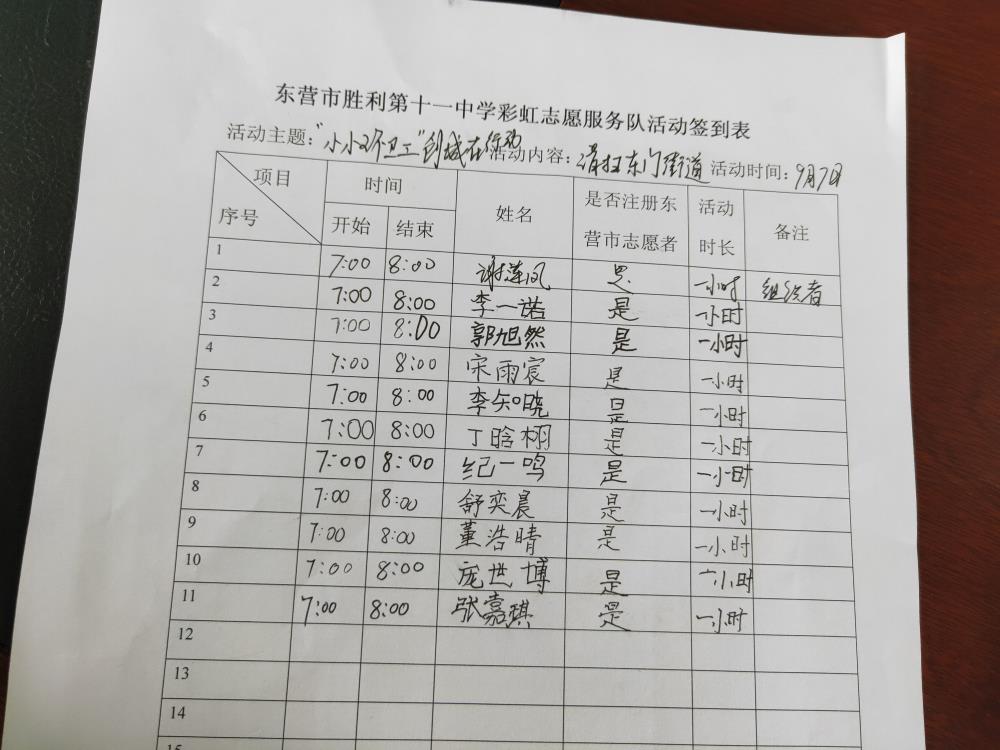 东营市胜利第十一中学彩虹志愿服务队活动签到表
活动主题：“小小环卫工”创城在行动 活动内容：清扫东门街道 活动时间：9月7日
项目 时间 姓名 是否注册东营市志愿者 活动时长 备注
序号 开始 结束
1 7:00 8:00 谢莲凤 是 一小时 组织者
2 7:00 8:00 李一诺 是 一小时
3 7:00 8:00 郭旭然 是 一小时
4 7:00 8:00 宋雨宸 是 一小时
5 7:00 8:00 李知晓 是 一小时
6 7:00 8:00 丁晗栩 是 一小时
7 7:00 8:00 纪一鸣 是 一小时
8 7:00 8:00 舒奕晨 是 一小时
9 7:00 8:00 董浩晴 是 一小时
10 7:00 8:00 庞世博 是 一小时
11 7:00 8:00 张嘉琪 是 一小时
12
13
14
15